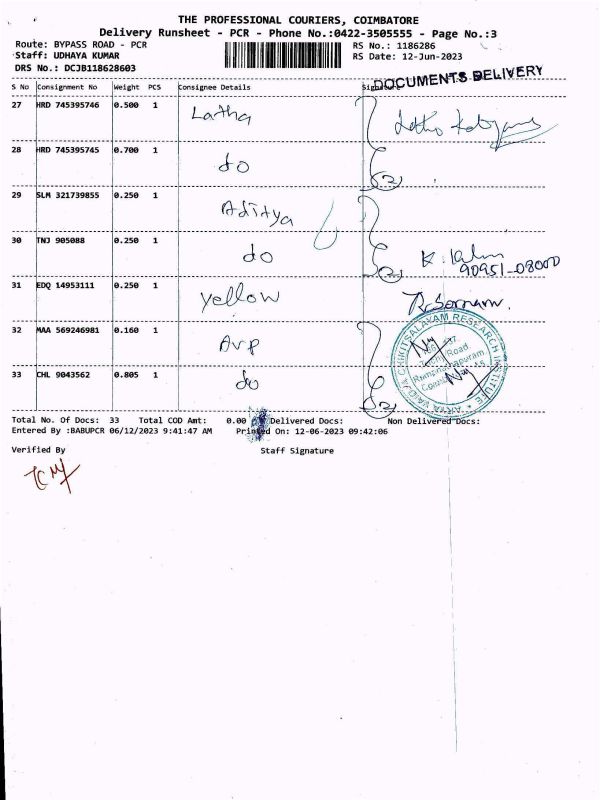 THE PROFESSIONAL COURIERS, COIMBATORE
Delivery Runsheet - PCR - Phone No.:0422-3505555 - Page No.:3
Route: BYPASS ROAD - PCR RS No.: 1186286
Staff: UDHAYA KUMAR RS Date: 12-Jun-2023
DRS No.: DCJB118628603
DOCUMENTS DELIVERY
S No Consignment No Weight PCS Consignee Details Signature
27 HRD 745395746 0.500 1 Latha
28 HRD 745395745 0.700 1 do (2)
29 SLM 321739855 0.250 1 Aditya
30 TNJ 905088 0.250 1 do (2) K.
90951-08000
31 EDQ 14953111 0.250 1 Yellow
32 MAA 569246981 0.160 1 Avp
33 CHL 9043562 0.805 1 do (2)
ARYA VAIDYA CHIKITSALAYAM RESEARCH INSTITUTE
Road,
Ramanathapuram
Total No. Of Docs: 33 Total COD Amt: 0.00 Delivered Docs: Non Delivered Docs:
Entered By :BABUPCR 06/12/2023 9:41:47 AM Printed On: 12-06-2023 09:42:06
Verified By Staff Signature